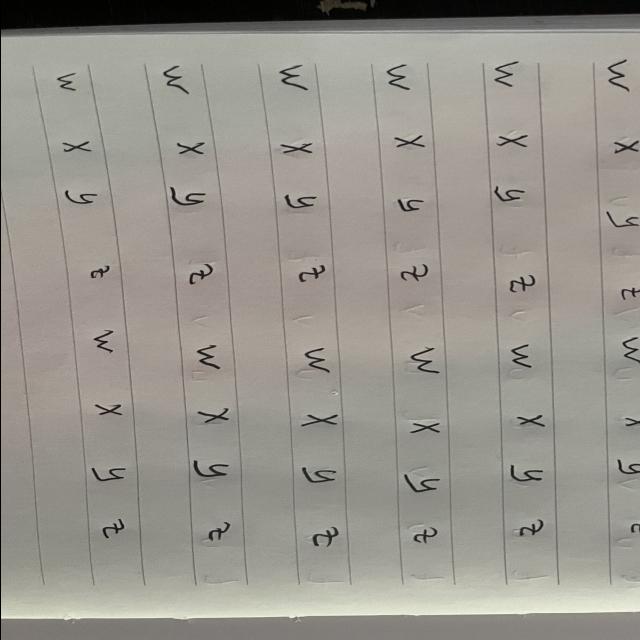 w x y z w x y z
w x y z w x y z
w x y z w x y z
w x y z w x y z
w x y z w x y z
w x y z w x y z